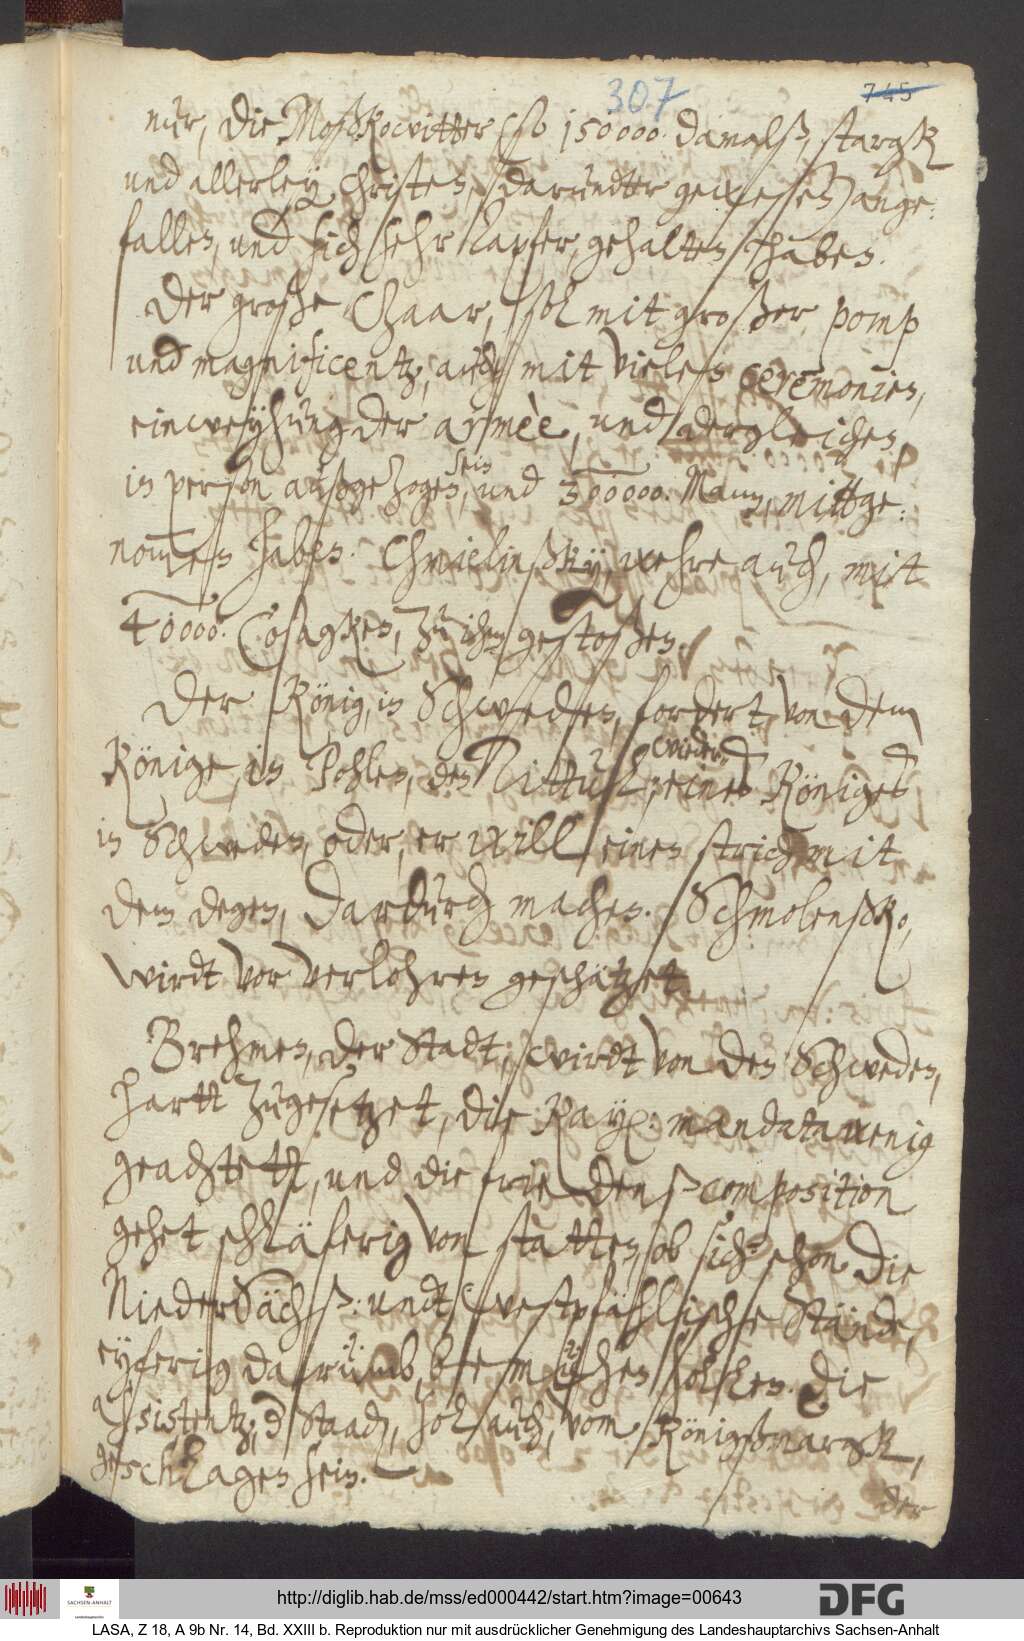 307
745
nur, die Moßkowitter (so 150000. damalß, starck
und allerley Christen, darundter gewesen) ange:
fallen, und sich sehr tapfer, gehalten haben.
Der große Czaar, sol mit großer pomp
und magnificentz, auch mit vielen ceremonien,
einweyhung der armèe, und dergleichen,
in person außgezogen, sein und 300000. Mann, mittge:
nommen haben. Chmielinßky, wehre auch, mit
40000. Cosagken, zu ihm gestoßen.
Der König, in Schweden, fordert, von dem
Könige, in Pohlen, den Tittul, wieder, eines Königes
in Schweden, oder, er will einen strich mit
dem degen, dardurch machen. Schmolenßko,
wirdt vor verlohren geschätzet.
Brehmen, der Stadt, wirdt von den Schweden,
hartt zugesetzet, die Kay: mandata wenig
geachtett, und die friedenß-composition
gehet schläferig von statten, ob sich schon die
NiederSächß: undt westphählische Stände,
eyferig darumb, bemühen sollen. Die
Assistentz, d Staadn, sol auch, vom Königßmarck,
geschlagen sein.
der
http://diglib.hab.de/mss/ed000442/start.htm?image=00643
DFG
SACHSEN-ANHALT
Landeshauptarchiv
LASA, Z 18, A 9b Nr. 14, Bd. XXIII b. Reproduktion nur mit ausdrücklicher Genehmigung des Landeshauptarchivs Sachsen-Anhalt